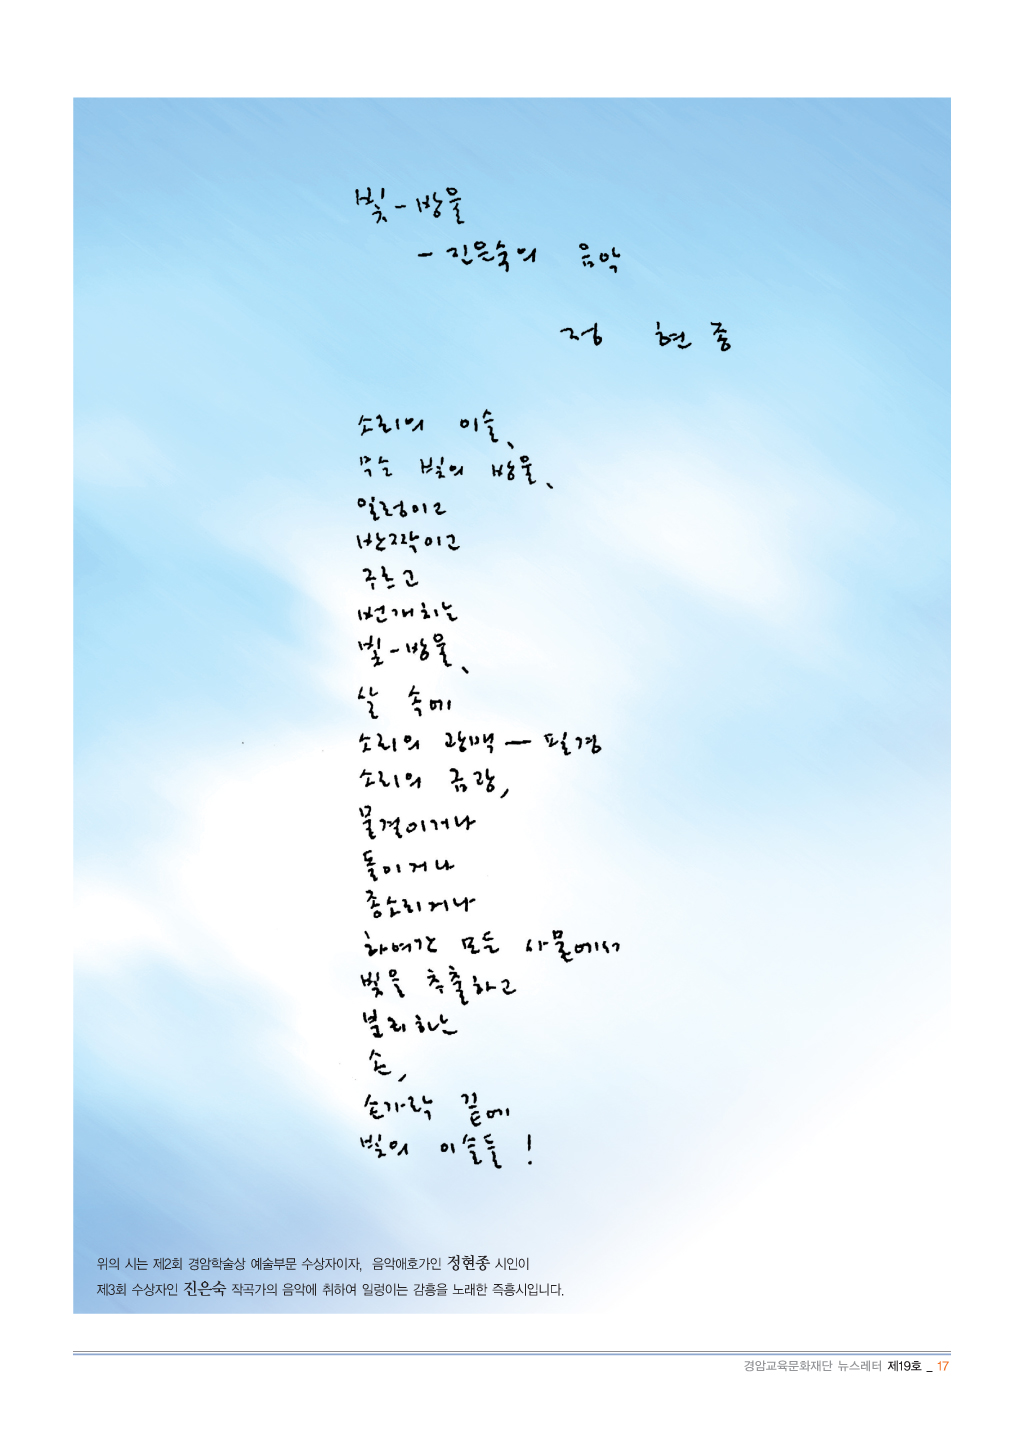 빛-방울
- 진은숙의 음악
정 현종
소리의 이슬,
무슨 빛의 방울,
일렁이고
반짝이고
구르고
번개치는
빛-방울,
살 속에
소리의 광맥 — 필경
소리의 금광,
물결이거나
돌이거나
종소리거나
하여간 모든 사물에서
빛을 추출하고
분리하는
손,
손가락 끝에
빛의 이슬들 !
위의 시는 제2회 경암학술상 예술부문 수상자이자, 음악애호가인 정현종 시인이
제3회 수상자인 진은숙 작곡가의 음악에 취하여 일렁이는 감흥을 노래한 즉흥시입니다.
경암교육문화재단 뉴스레터 제19호 _ 17